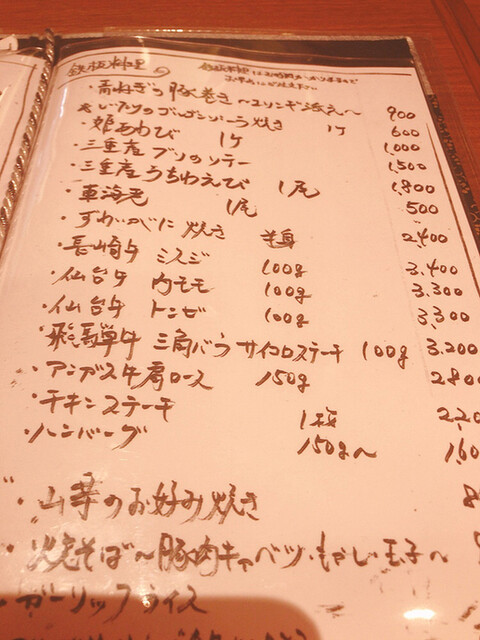 鉄板料理
・青ねぎの豚巻き〜エリンギ添え〜 900
しいたけのゴルゴンゾーラ焼き 1ケ 600
・姫あわび 1ケ 1,000
・三重産ブリのソテー 1,500
・三重産うちわえび 1尾 1,800
・車海老 1尾 500
・ずわいがに焼き 半身 2,400
・長崎牛 ミスジ 100g 3,400
・仙台牛 内モモ 100g 3,300
・仙台牛 トンビ 100g 3,300
・飛騨牛 三角バラ サイコロステーキ 100g 3,200
・アンガス牛肩ロース 150g 280
・チキンステーキ 1枚 2,20
・ハンバーグ 150g〜 1,60
・山芋のお好み焼き 8
・焼そば〜豚肉キャベツ・もやし・玉子〜
・ガーリックライス